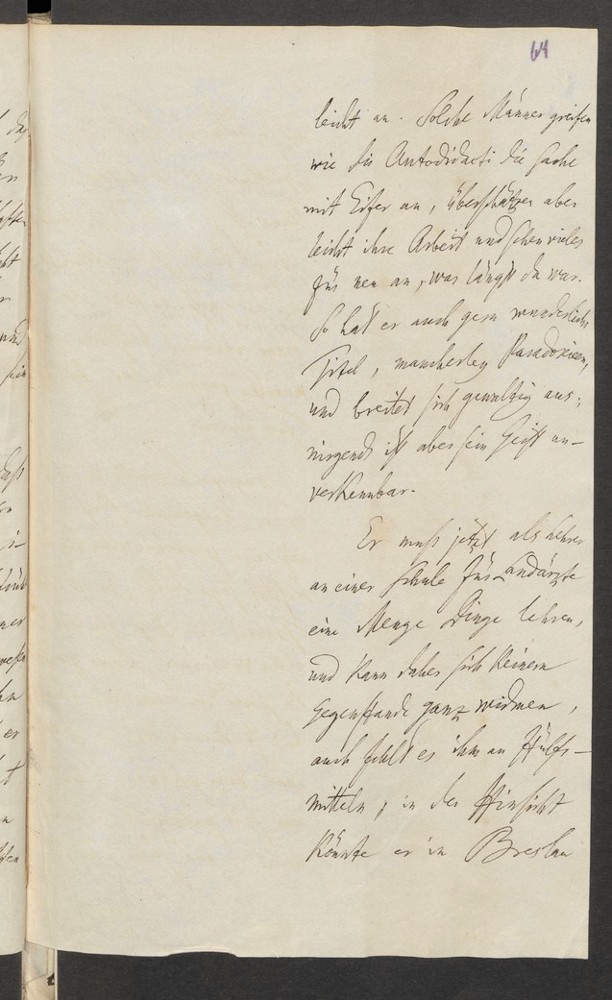 64
leicht an. Solche Männer greifen
wie die Autodidacti die Sache
mit Eifer an, überschätzen aber
leicht ihre Arbeit und sehen vieles
für neu an, was längst da war.
So hat er auch gern wunderliche
Titel, mancherley Paradoxieen,
und breitet sich gewaltig aus;
nirgends ist aber sein Geist un-
verkennbar.
Er muß jetzt als Lehrer
an einer Schule für Landärzte
eine Menge Dinge lehren,
und kann daher sich keinem
Gegenstande ganz widmen,
auch fehlt es ihm an Hülfs-
mitteln; in der Hinsicht
könnte er in Breslau